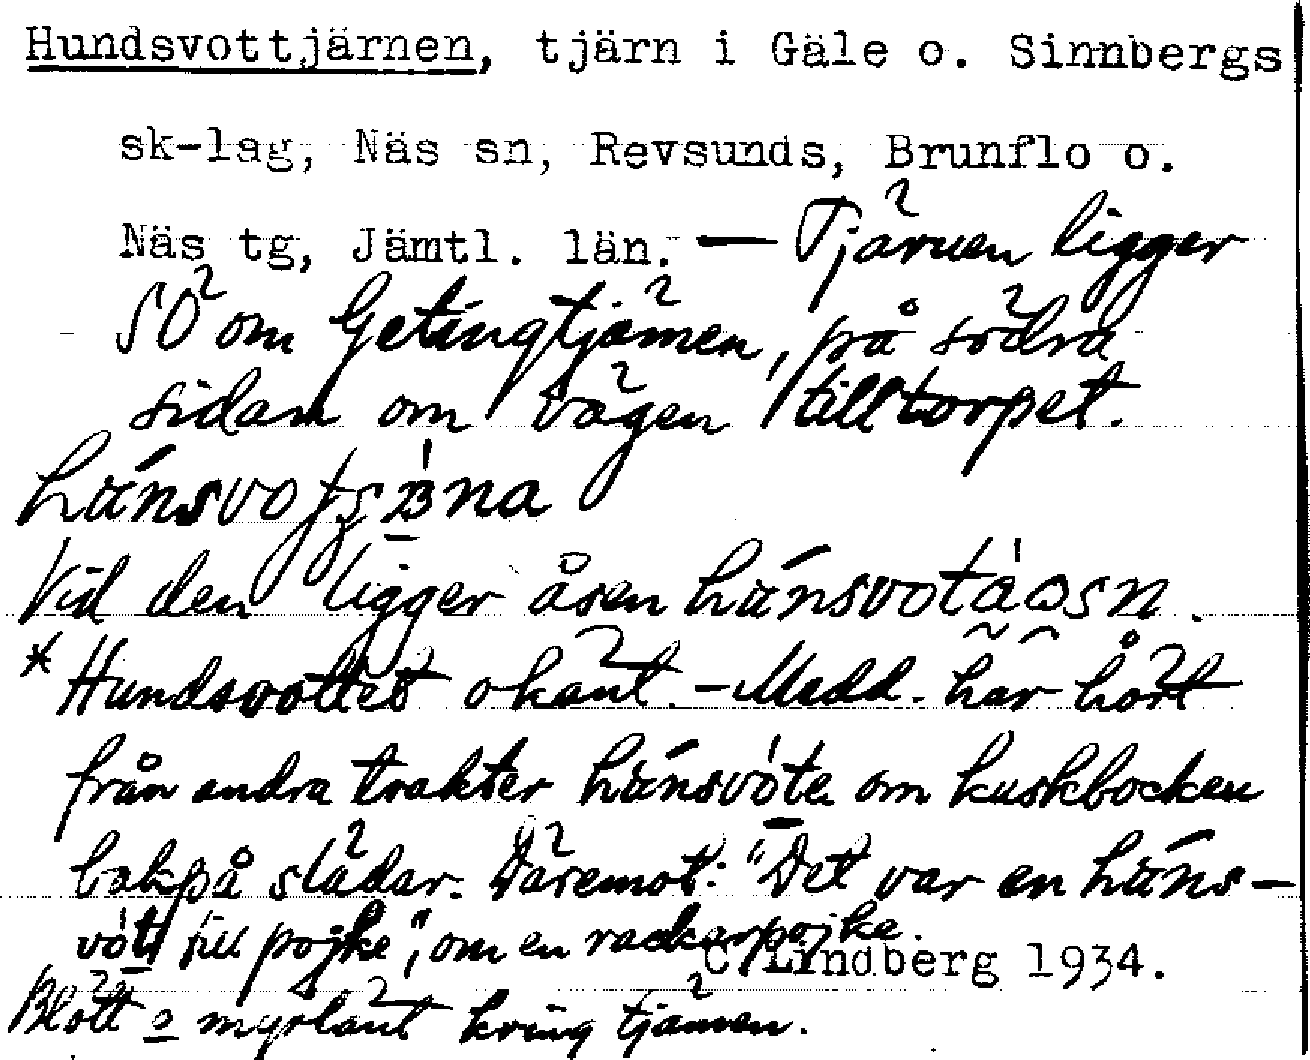 Hundsvottjärnen, tjärn i Gäle o. Sinnbergs
sk-lag, Näs sn, Revsunds, Brunflo o.
Näs tg, Jämtl. län. — Tjärnen ligger
SO om Getingtjärnen, på södra
sidan om vägen till torpet.
Vid den ligger åsen
* Hundsvottet okänt. - Medd. har hört
från andra trakter om kuskbocken
bakpå slädar. Däremot: "Det var en
till pojke", om en rackarpojke.
C Lindberg 1934.
Blött o myrlänt kring tjärnen.